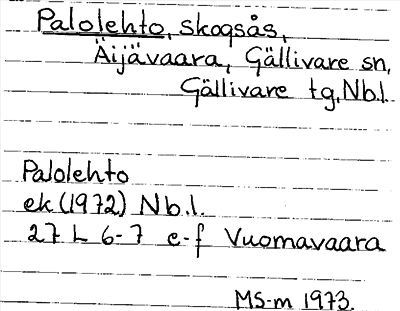 Palolehto, skogsås,
Äijävaara, Gällivare sn,
Gällivare tg, Nb.l.
Palolehto
ek (1972) Nb.l.
27 L 6-7 e-f Vuomavaara
MS-m 1973.